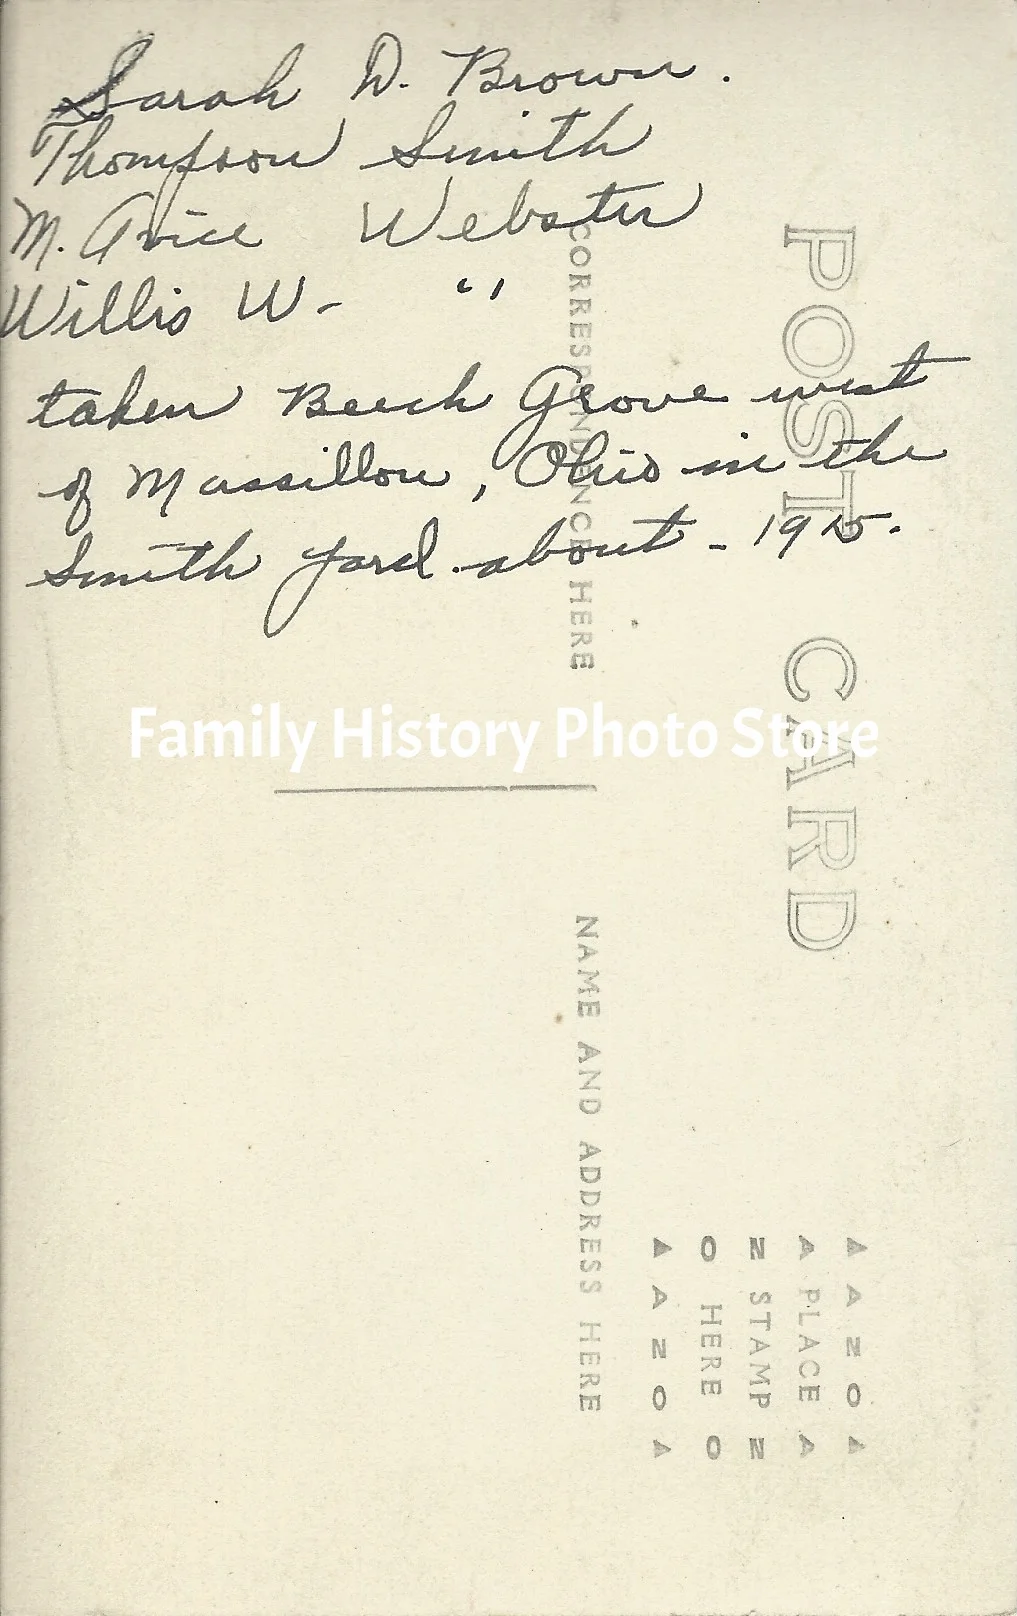 Sarah D. Brown.
Thompson Smith
M. Avice Webster
Willis W- "
taken Beech Grove west
of Massillon, Ohio in the
Smith yard. about - 1915.
POST CARD
CORRESPONDENCE HERE
Family History Photo Store
NAME AND ADDRESS HERE
▲ A Z O ▲
A PLACE A
Z STAMP Z
O HERE O
▲ A Z O ▲